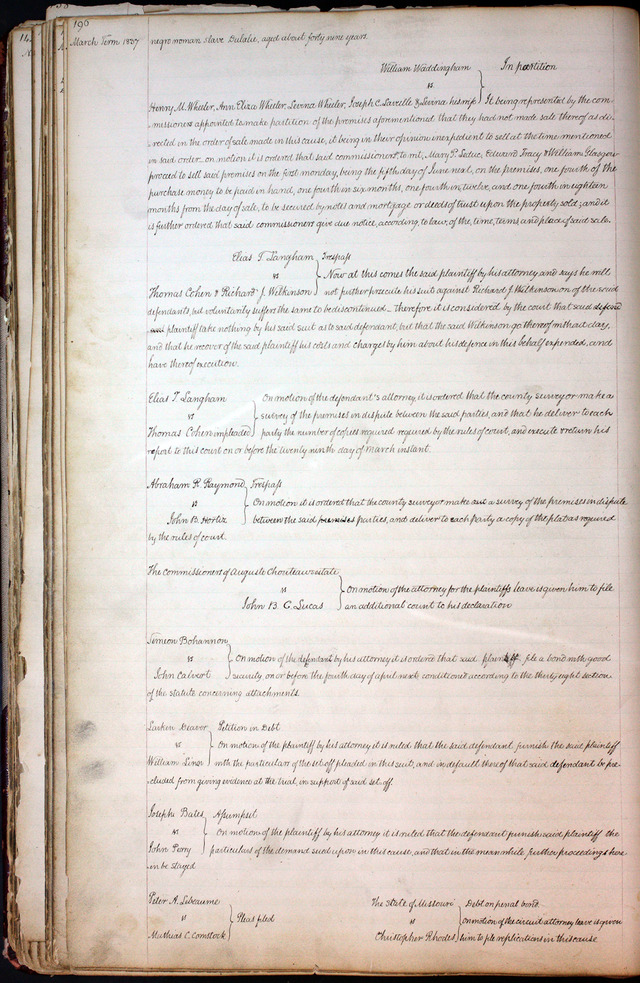 196
March Term 1837
negro woman slave Eulalie, aged about forty nine years.
William Waddingham } In partition
vs
Henry M. Wheeler, Ann Eliza Wheeler, Levina Wheeler, Joseph C. Laveille & Levina his wife } It being represented by the com-
missioners appointed to make partition of the premises aforementioned that they had not made sale thereof as di-
rected in the order of sale made in this cause, it being in their opinion inexpedient to sell at the time mentioned
in said order, on motion it is ordered that said commissioners, to wit, Mary P. Leduc, Edward Tracy & William Glasgow
proceed to sell said premises on the first monday, being the fifth day of June next, on the premises, one fourth of the
purchase money to be paid in hand, one fourth in six months, one fourth in twelve, and one fourth in eighteen
months from the day of sale, to be secured by notes and mortgage or deeds of trust upon the property sold; and it
is further ordered that said commissioners give due notice, according to law, of the time, terms and place of said sale.
Elias T. Langham } Trespass
vs Now at this comes the said plaintiff by his attorney, and says he will
Thomas Cohen & Richard J. Wilkinson } not further prosecute his suit against Richard J. Wilkinson one of the said
defendants, but voluntarily suffers the same to be discontinued – therefore it is considered by the court that said defend
plaintiff take nothing by his said suit as to said defendant, but that the said Wilkinson go thereof without day,
and that he recover of the said plaintiff his costs and charges by him about his defence in this behalf expended, and
have thereof execution.
Elias T. Langham } On motion of the defendant's attorney it is ordered that the county surveyor make a
vs survey of the premises in dispute between the said parties, and that he deliver to each
Thomas Cohen impleaded } party the number of copies required required by the rules of court, and execute & return his
report to this court on or before the twenty ninth day of march instant.
Abraham R. Raymond } Trespass
vs On motion it is ordered that the county surveyor make out a survey of the premises in dispute
John B. Hortiz } between the said premises parties, and deliver to each party a copy of the plat as required
by the rules of court.
The Commissioners of Auguste Chouteau's estate
vs } On motion of the attorney for the plaintiffs leave is given him to file
John B. C. Lucas an additional count to his declaration
Simeon Bohannon
vs } On motion of the defendant by his attorney it is ordered that said plaintiff file a bond with good
John Calvert security, on or before the fourth day of april next conditioned according to the thirty eight section
of the statute concerning attachments.
Larken Deaver } Petition in Debt
vs On motion of the plaintiff by his attorney it is ruled that the said defendant furnish the said plaintiff
William with the particulars of the set off pleaded in this suit, and in default thereof that said defendant be pre-
cluded from giving evidence at the trial, in support of said set off.
Joseph Bates } Assumpsit
vs On motion of the plaintiff by his attorney it is ruled that the defendant furnish said plaintiff the
John Perry } particulars of the demand sued upon in this cause, and that in the meanwhile further proceedings here-
in be stayed
Peter A. Lebeaume
vs } Pleas filed
Mathias C. Comstock
The State of Missouri } Debt on penal bond
vs on motion of the circuit attorney leave is given
Christopher Rhodes } him to file replications in this cause